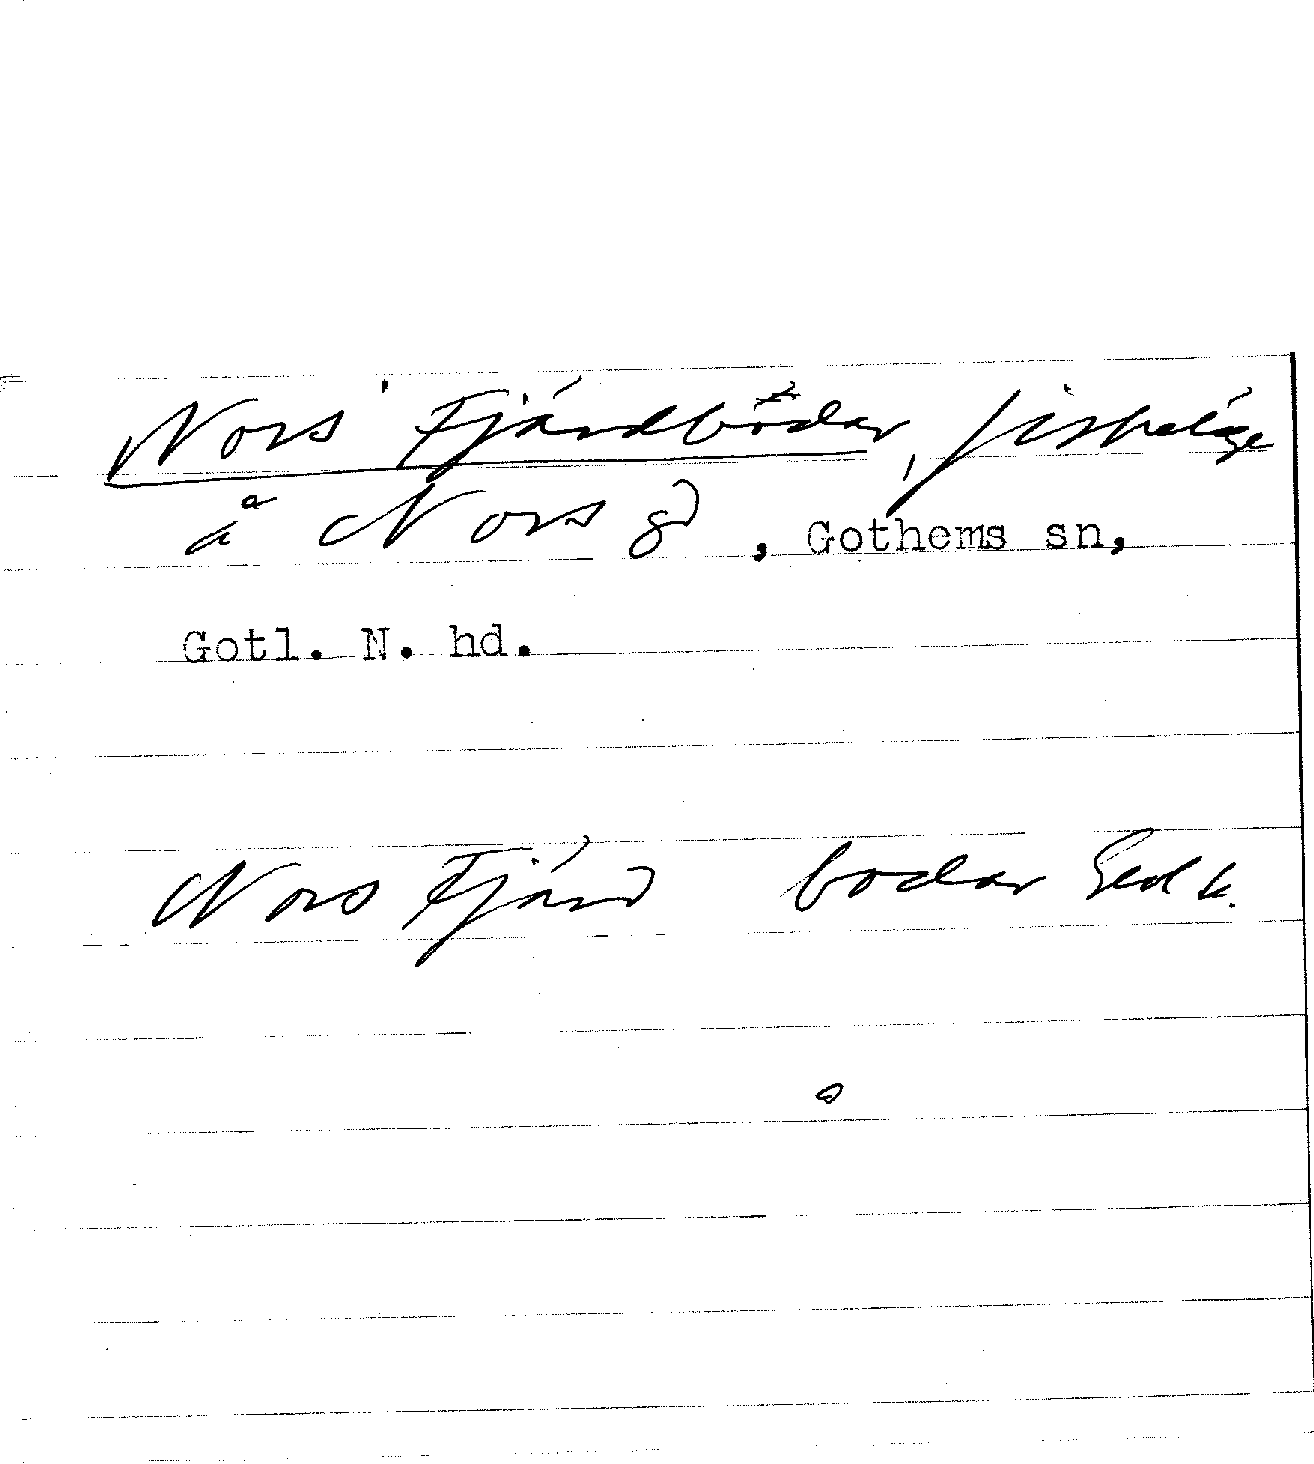 Nors' Fjärdbodar, fiskeläge
å Nors gd, Gothems sn,
Gotl. N. hd.
Nors Fjärd bodar k.